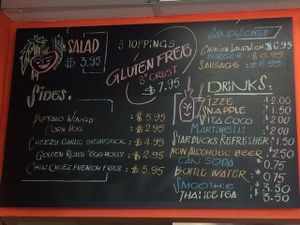 SALAD
$ 3.95
5 TOPPINGS
GLUTEN FREE
CRUST
$ 7.95
SIDES:
BUFFALO WINGS $ 5.95
CORN DOG $ 2.95
CHEEZY GARLIC BREADSTICK $ 4.95
GOLDEN ROLLS "EGG ROLLS" $ 2.95
CHILI CHEEZ FRENCH FRIES $ 5.95
SANDWICHES
CHICKEN SANDWICH $ 6.95
BURGER $ 6.95
SAUSAGE $ 6.95
DRINKS.
IZZE $2.00
SNAPPLE $1.50
VITA COCO $2.00
MARTINELLI $2.00
STARBUCKS REFRESHER $1.50
NON ALCOHOLIC BEER $2.50
CAN SODA $0.75
BOTTLE WATER $0.75
SMOOTHIE $3.50
THAI ICE TEA $3.50